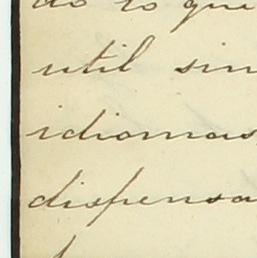 do lo que
util sin
idiomas
dispensa